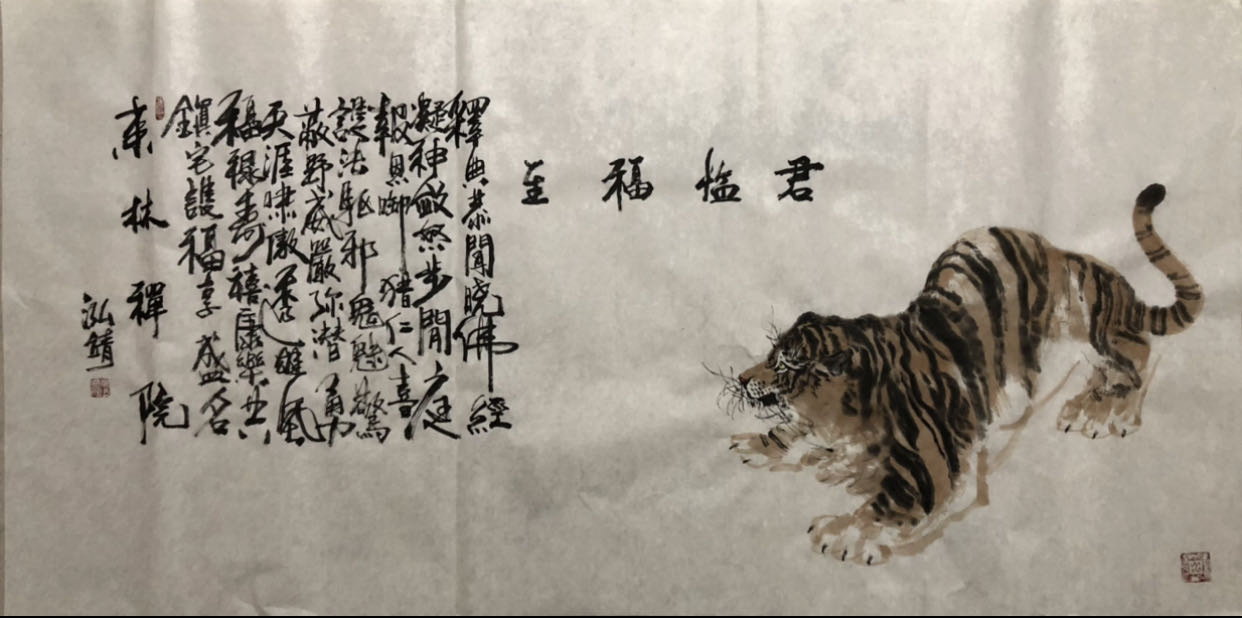 君福至
釋典恭聞曉佛經
凝神斂煞步閒庭
報恩啣猎仁人喜
護法駆邪鬼魅驚
蔽野威嚴弥潜勇
天涯嘯傲雄風
福祿壽禧康樂共
鎮宅護福享盛名
東林禪院
泓靖